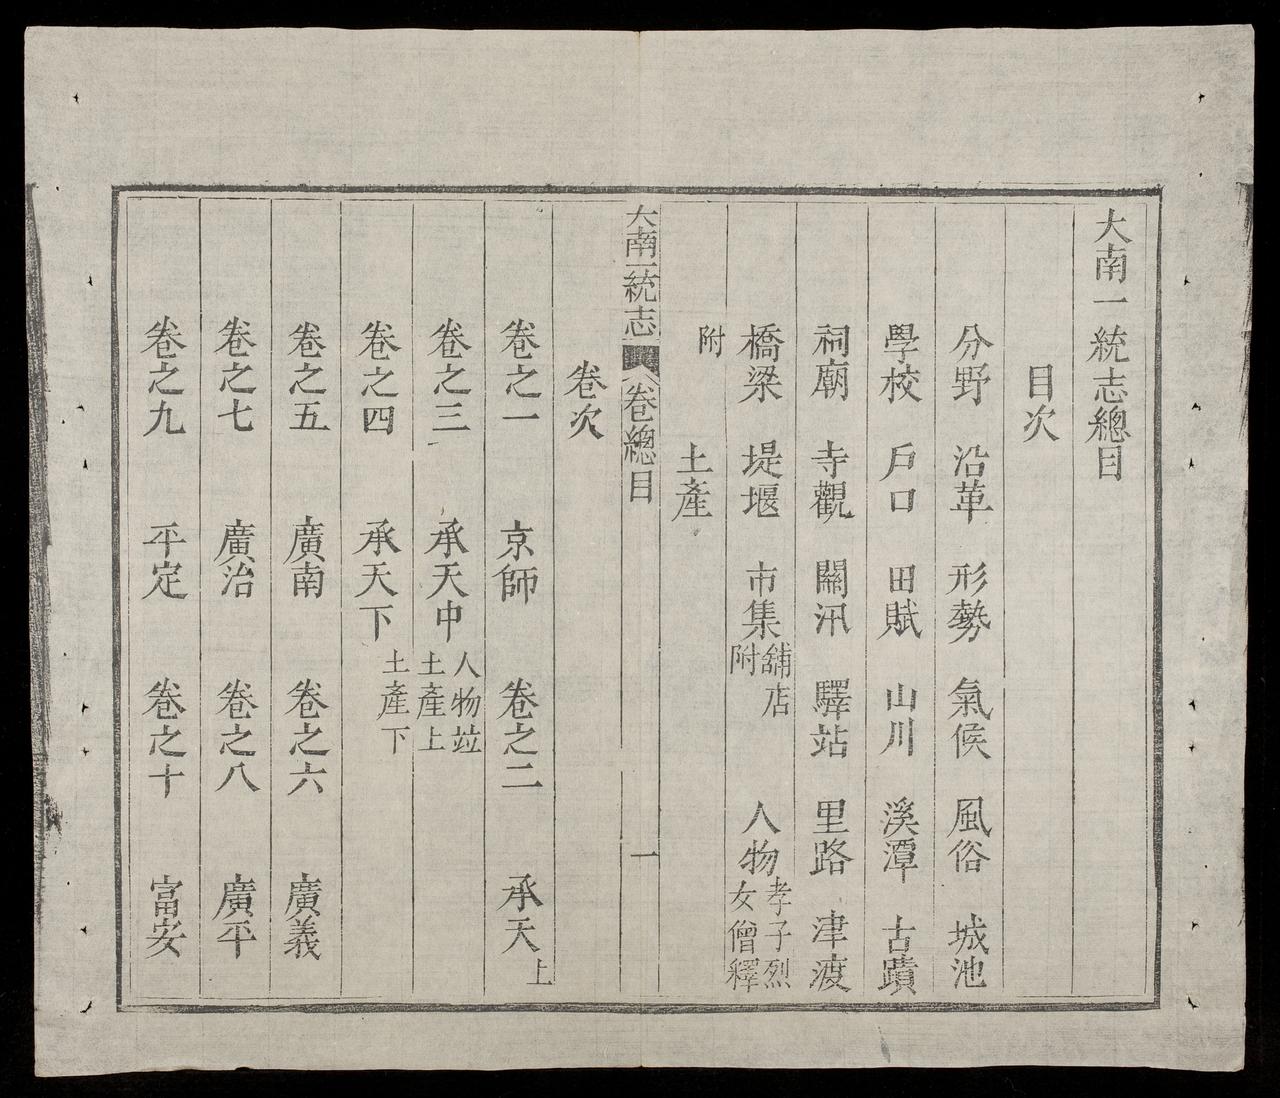 大南一統志總目
目次
分野 沿革 形勢 氣候 風俗 城池
學校 戶口 田賦 山川 溪潭 古蹟
祠廟 寺觀 關汛 驛站 里路 津渡
橋梁 堤堰 市集舖店附 人物孝子烈女僧釋
附 土產
大南一統志 卷總目 一
卷次
卷之一 京師 卷之二 承天上
卷之三 承天中人物竝土產上
卷之四 承天下土產下
卷之五 廣南 卷之六 廣義
卷之七 廣治 卷之八 廣平
卷之九 平定 卷之十 富安